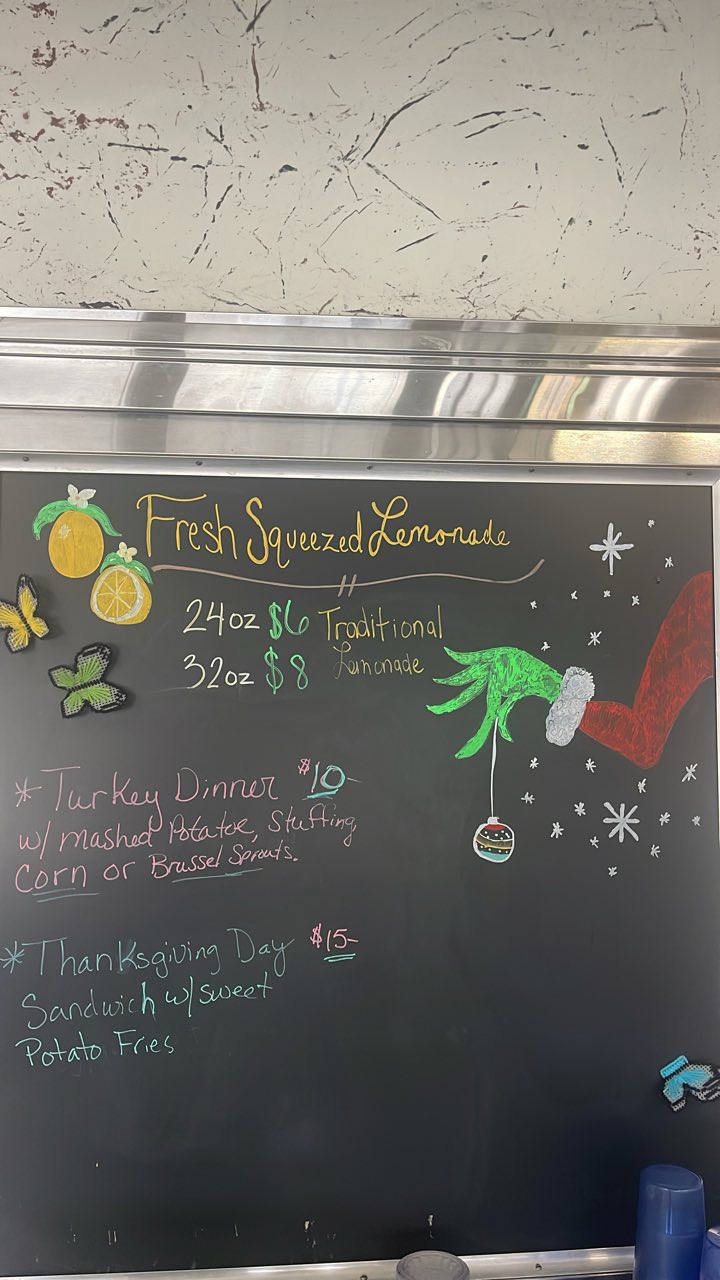 Fresh Squeezed Lemonade
24oz $6 Traditional
32oz $8 Lemonade
* Turkey Dinner $10-
w/ mashed Potatoe, Stuffing,
Corn or Brussel Sprouts.
* Thanksgiving Day $15-
Sandwich w/ sweet
Potato Fries